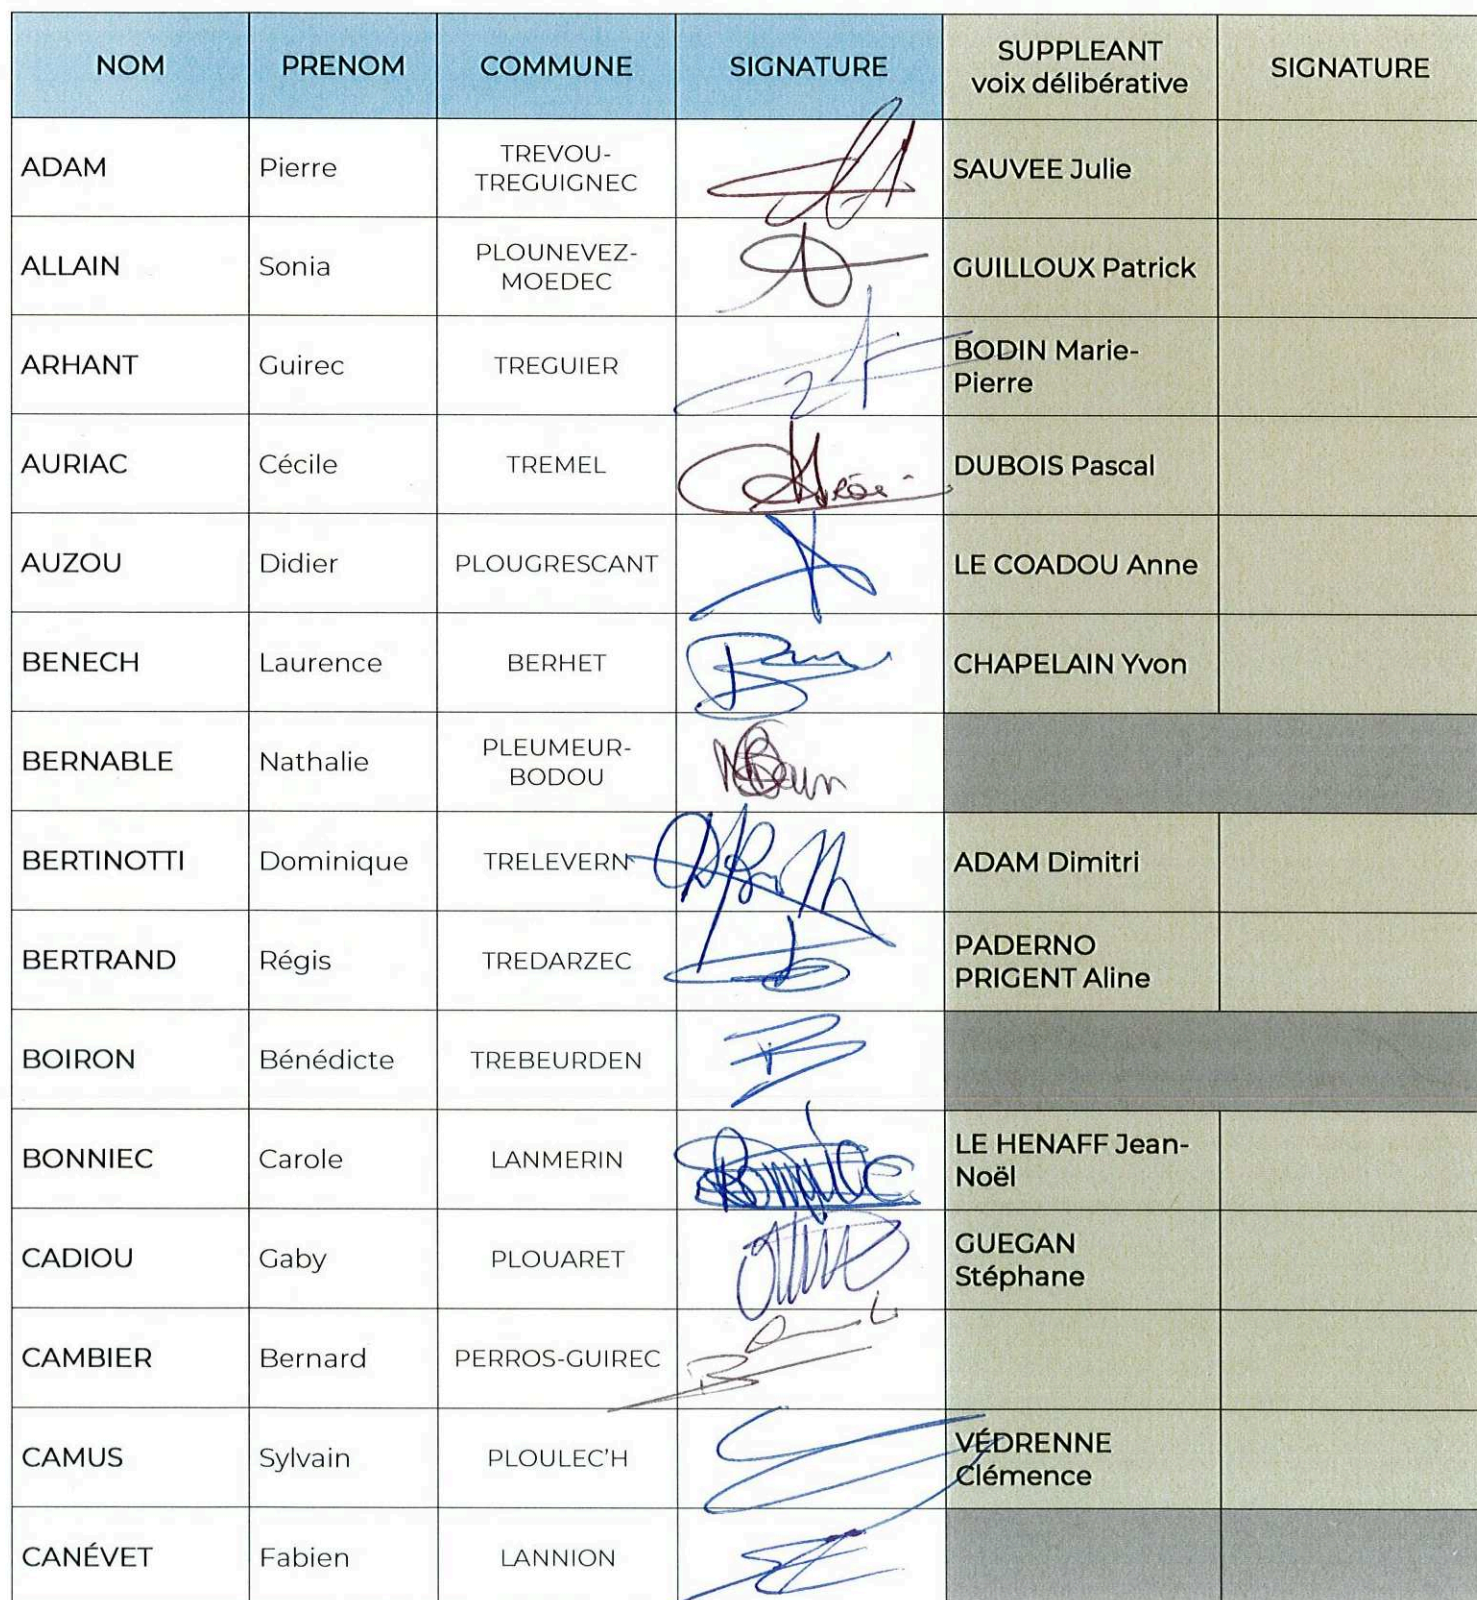 NOM PRENOM COMMUNE SIGNATURE SUPPLEANT SIGNATURE
voix délibérative
ADAM Pierre TREVOU- SAUVEE Julie
TREGUIGNEC
ALLAIN Sonia PLOUNEVEZ- GUILLOUX Patrick
MOEDEC
ARHANT Guirec TREGUIER BODIN Marie-
Pierre
AURIAC Cécile TREMEL DUBOIS Pascal
AUZOU Didier PLOUGRESCANT LE COADOU Anne
BENECH Laurence BERHET CHAPELAIN Yvon
BERNABLE Nathalie PLEUMEUR-
BODOU
BERTINOTTI Dominique TRELEVERN ADAM Dimitri
BERTRAND Régis TREDARZEC PADERNO
PRIGENT Aline
BOIRON Bénédicte TREBEURDEN
BONNIEC Carole LANMERIN LE HENAFF Jean-
Noël
CADIOU Gaby PLOUARET GUEGAN
Stéphane
CAMBIER Bernard PERROS-GUIREC
CAMUS Sylvain PLOULEC'H VÉDRENNE
Clémence
CANÉVET Fabien LANNION